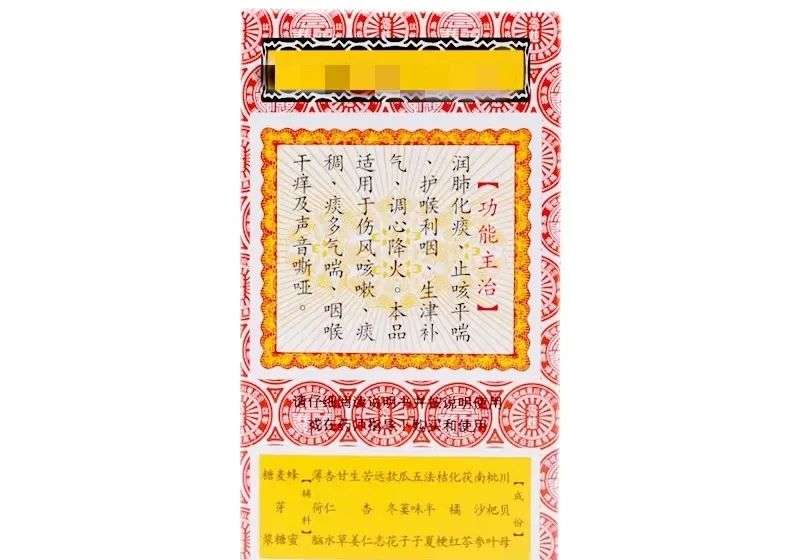 【功能主治】
润肺化痰、止咳平喘
、护喉利咽、生津补
气、调心降火。本品
适用于伤风咳嗽、痰
稠、痰多气喘、咽喉
干痒及声音嘶哑。
请仔细阅读说明书并按说明使用
或在药师指导下购买和使用
【成份】
川贝母
枇杷叶
南沙参
茯苓
化橘红
桔梗
法半夏
五味子
瓜蒌子
款冬花
远志
苦杏仁
生姜
甘草
杏仁水
薄荷脑
【辅料】
蜂蜜
麦芽糖
糖浆